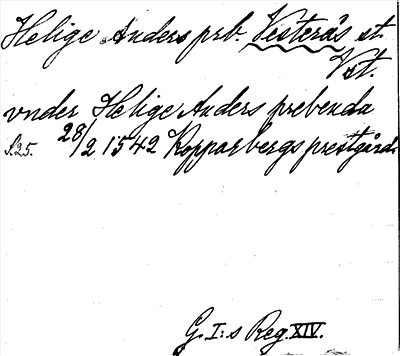 Helige Anders prb. Vesterås st.
Vst.
vnder Helige Anders prebenda
S.25. 28/2 1542 Kopparbergs prestgård.
G. I:s Reg. XIV.